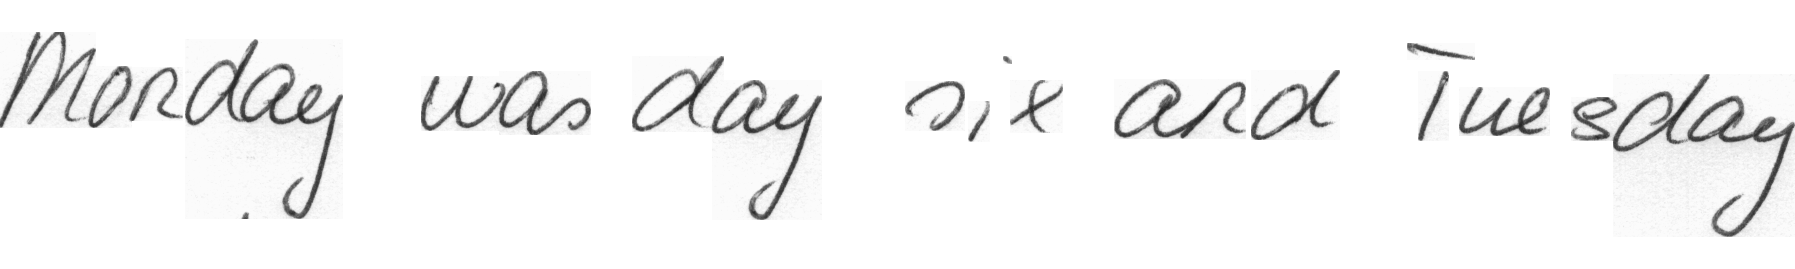 Monday was day six and Tuesday